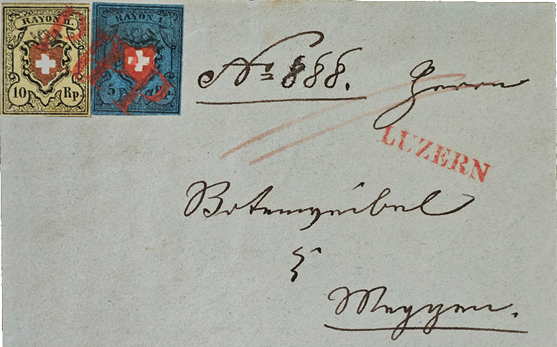 RAYON II. RAYON I.
10 Rp. 5 Rp.
No 888. Herrn
LUZERN
Meggen.